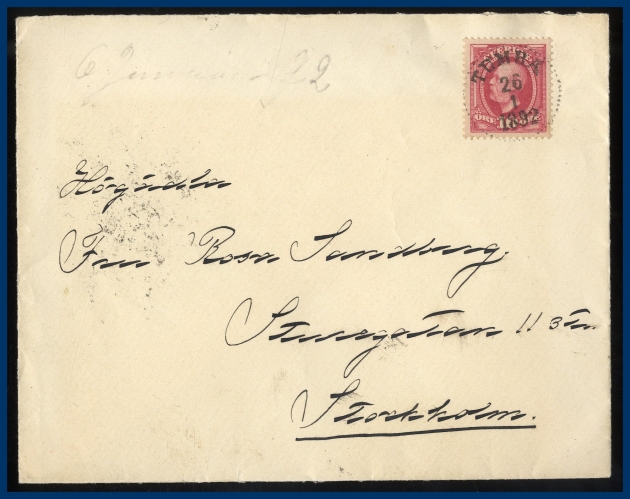 6 Januari 22
TUMBA
26
1
1892
ÖRE
Högädla
Fru Rosa Sandberg.
Sturegatan 11 3 tr.
Stockholm.